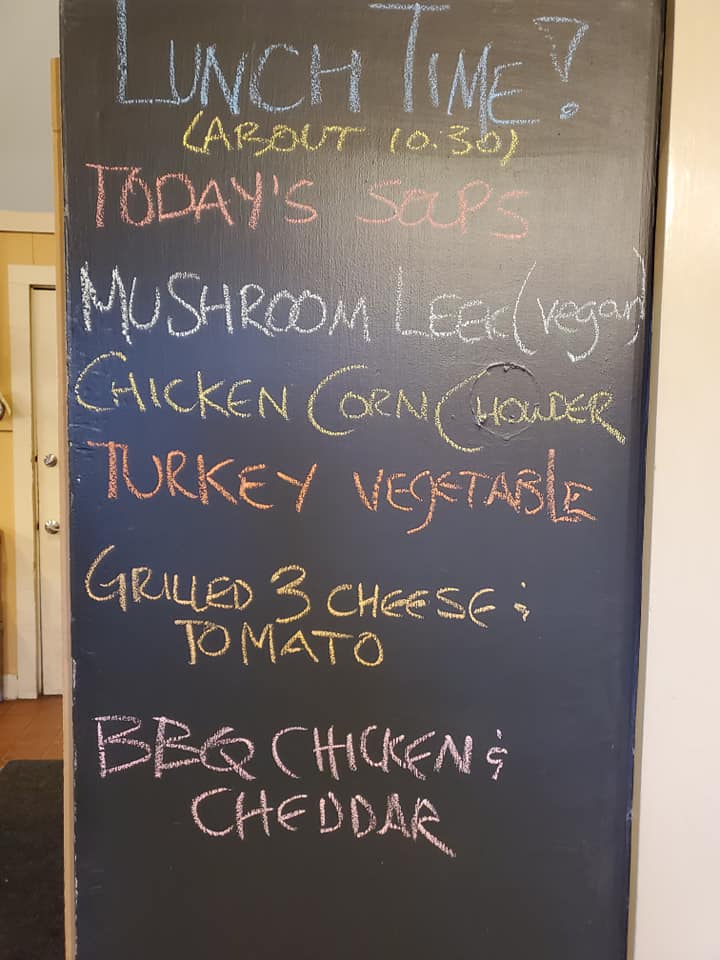 LUNCH TIME!
(ABOUT 10.30)
TODAY'S SOUPS
MUSHROOM LEEK (vegan)
CHICKEN CORN CHOWDER
TURKEY VEGETABLE
GRILLED 3 CHEESE &
TOMATO
BBQ CHICKEN &
CHEDDAR